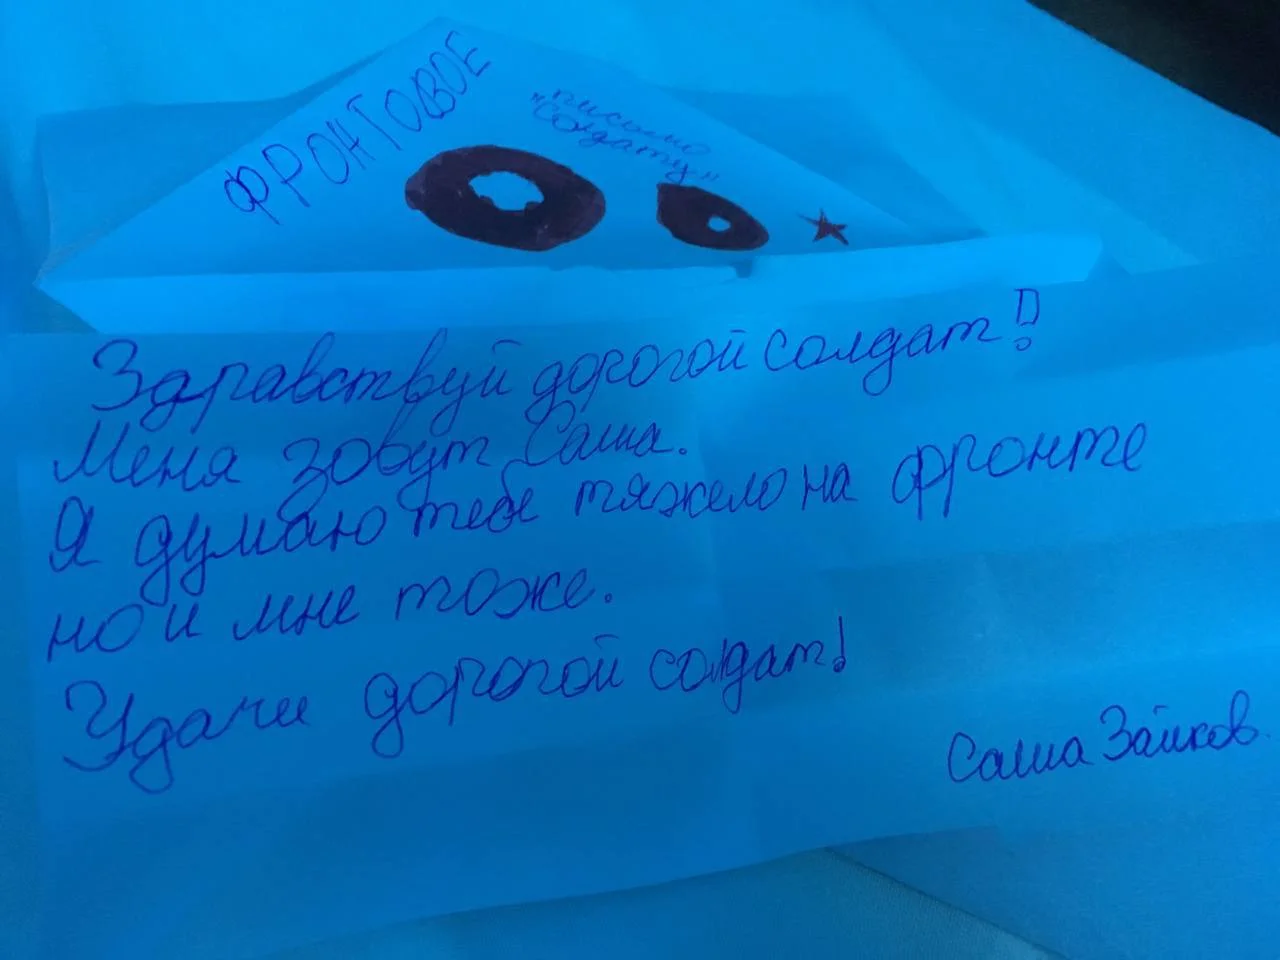 ФРОНТОВОЕ
"письмо
солдату"
Здравствуй дорогой солдат!
Меня зовут Саша.
Я думаю тебе тяжело на фронте
но и мне тоже.
Удачи дорогой солдат!
Саша Зайков.